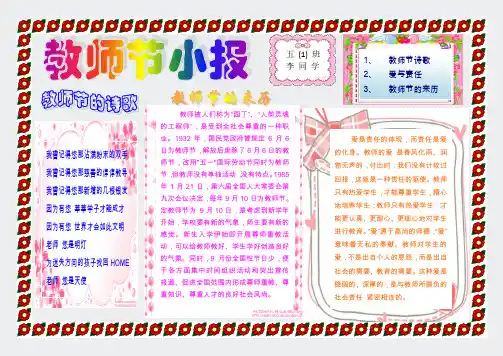 教师节小报
五 (1) 班
李 同 学
1、 教师节诗歌
2、 爱与责任
3、 教师节的来历
教师节的诗歌
教师节的来历
我曾记得您那沾满粉末的双手
我曾记得您那慈善的谆谆教导
我曾记得您那新增的几根银发
因为有您 莘莘学子才能成才
因为有您 世界才会如此文明
老师 您是明灯
为迷失方向的孩子找回 HOME
老师 您是天使
教师被人们称为“园丁”、“人类灵魂
的工程师”，是受到全社会尊重的一种职
业。1932 年，国民党政府曾规定 6 月 6
日为教师节，解放后废除了 6 月 6 日的教
师节，改用“五一”国际劳动节同时为教师
节，但教师没有单独活动，没有特点。1985
年 1 月 21 日，第六届全国人大常委会第
九次会议决定，每年 9 月 10 日为教师节。
定教师节为 9 月 10 日，是考虑到新学年
开始，学校要有新的气象，师生要有新的
感觉。新生入学伊始即开展尊师重教活
动，可以给教师教好、学生学好创造良好
的气氛。同时，9 月份全国性节日少，便
于各方面集中时间组织活动和突出宣传
报道，促进全国范围内形成尊师重教、尊
重知识、尊重人才的良好社会风尚。
爱是责任的体现，而责任是爱
的化身。教师的爱是春风化雨，润
物无声的，付出时，我们没有计较过
回报，这远是一种责任的驱使。教师
只有热爱学生，才能尊重学生，精心
地培养学生；教师只有热爱学生，才
能更认真，更耐心，更细心地对学生
进行教育。“爱”源于高尚的师德，“爱”
意味着无私的奉献。教师对学生的
爱，不是出自个人的恩怨，而是出自
社会的需要、教育的需要。这种爱是
稳固的，深厚的，是与教师所肩负的
社会责任 紧密相连的。